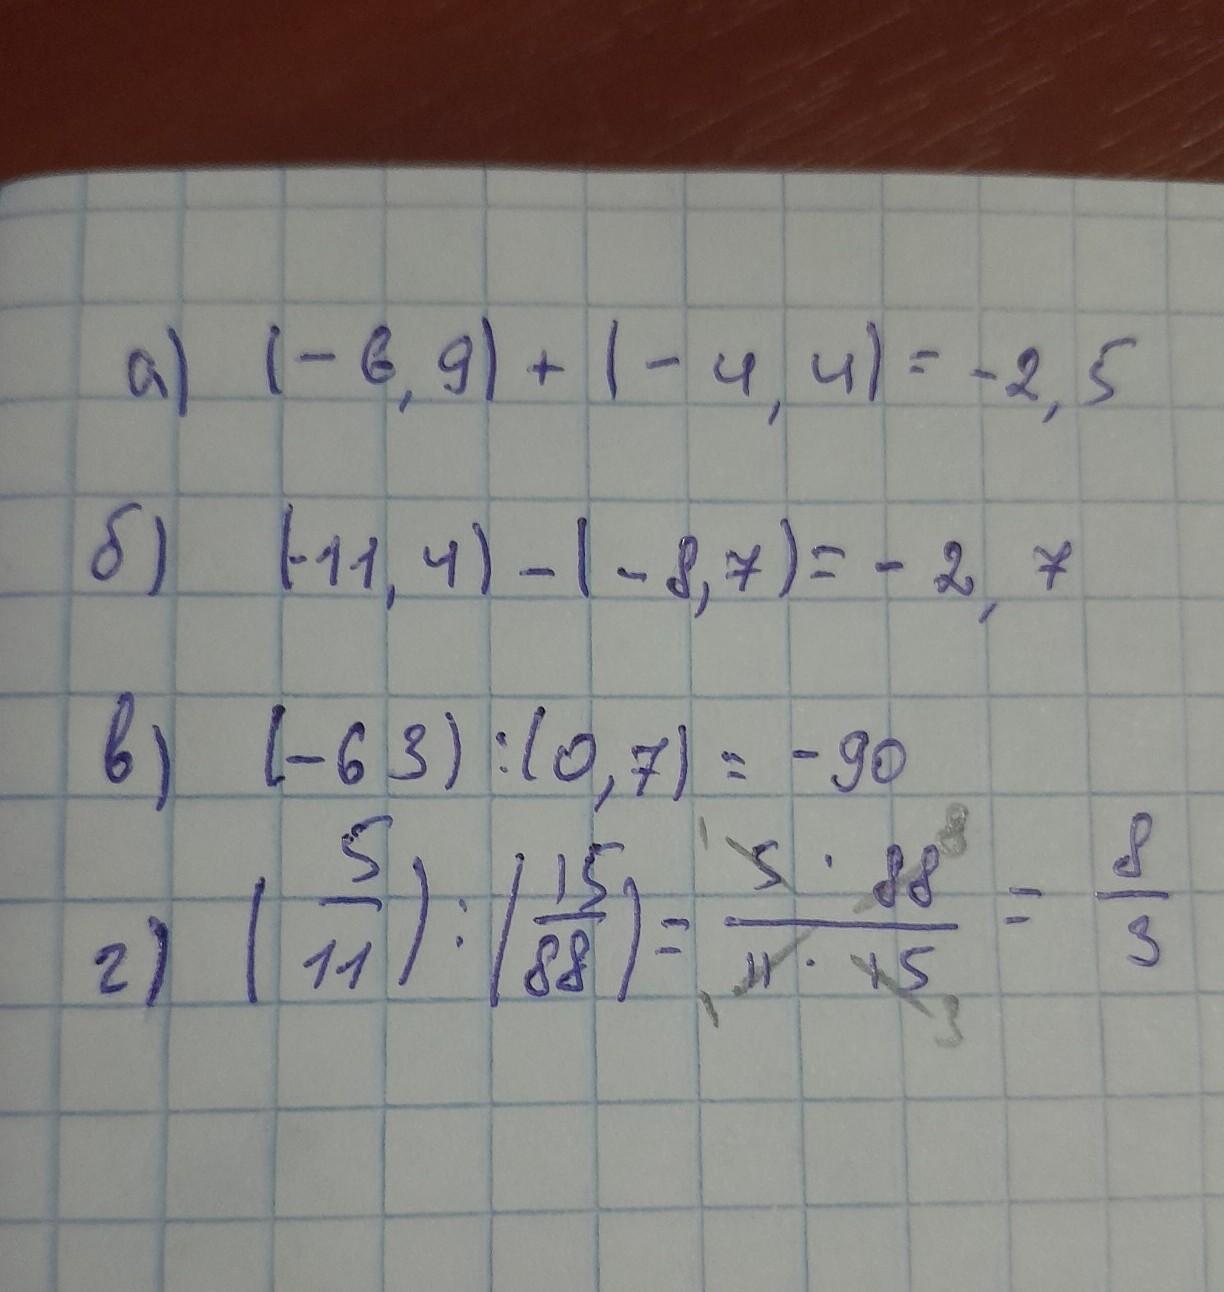 а) (-6,9) + (-4,4) = -2,5
б) (-11,4) - (-8,7) = -2,7
в) (-63) : (0,7) = -90
г) (5/11) : (15/88) = (5 · 88)/(11 · 15) = 8/3